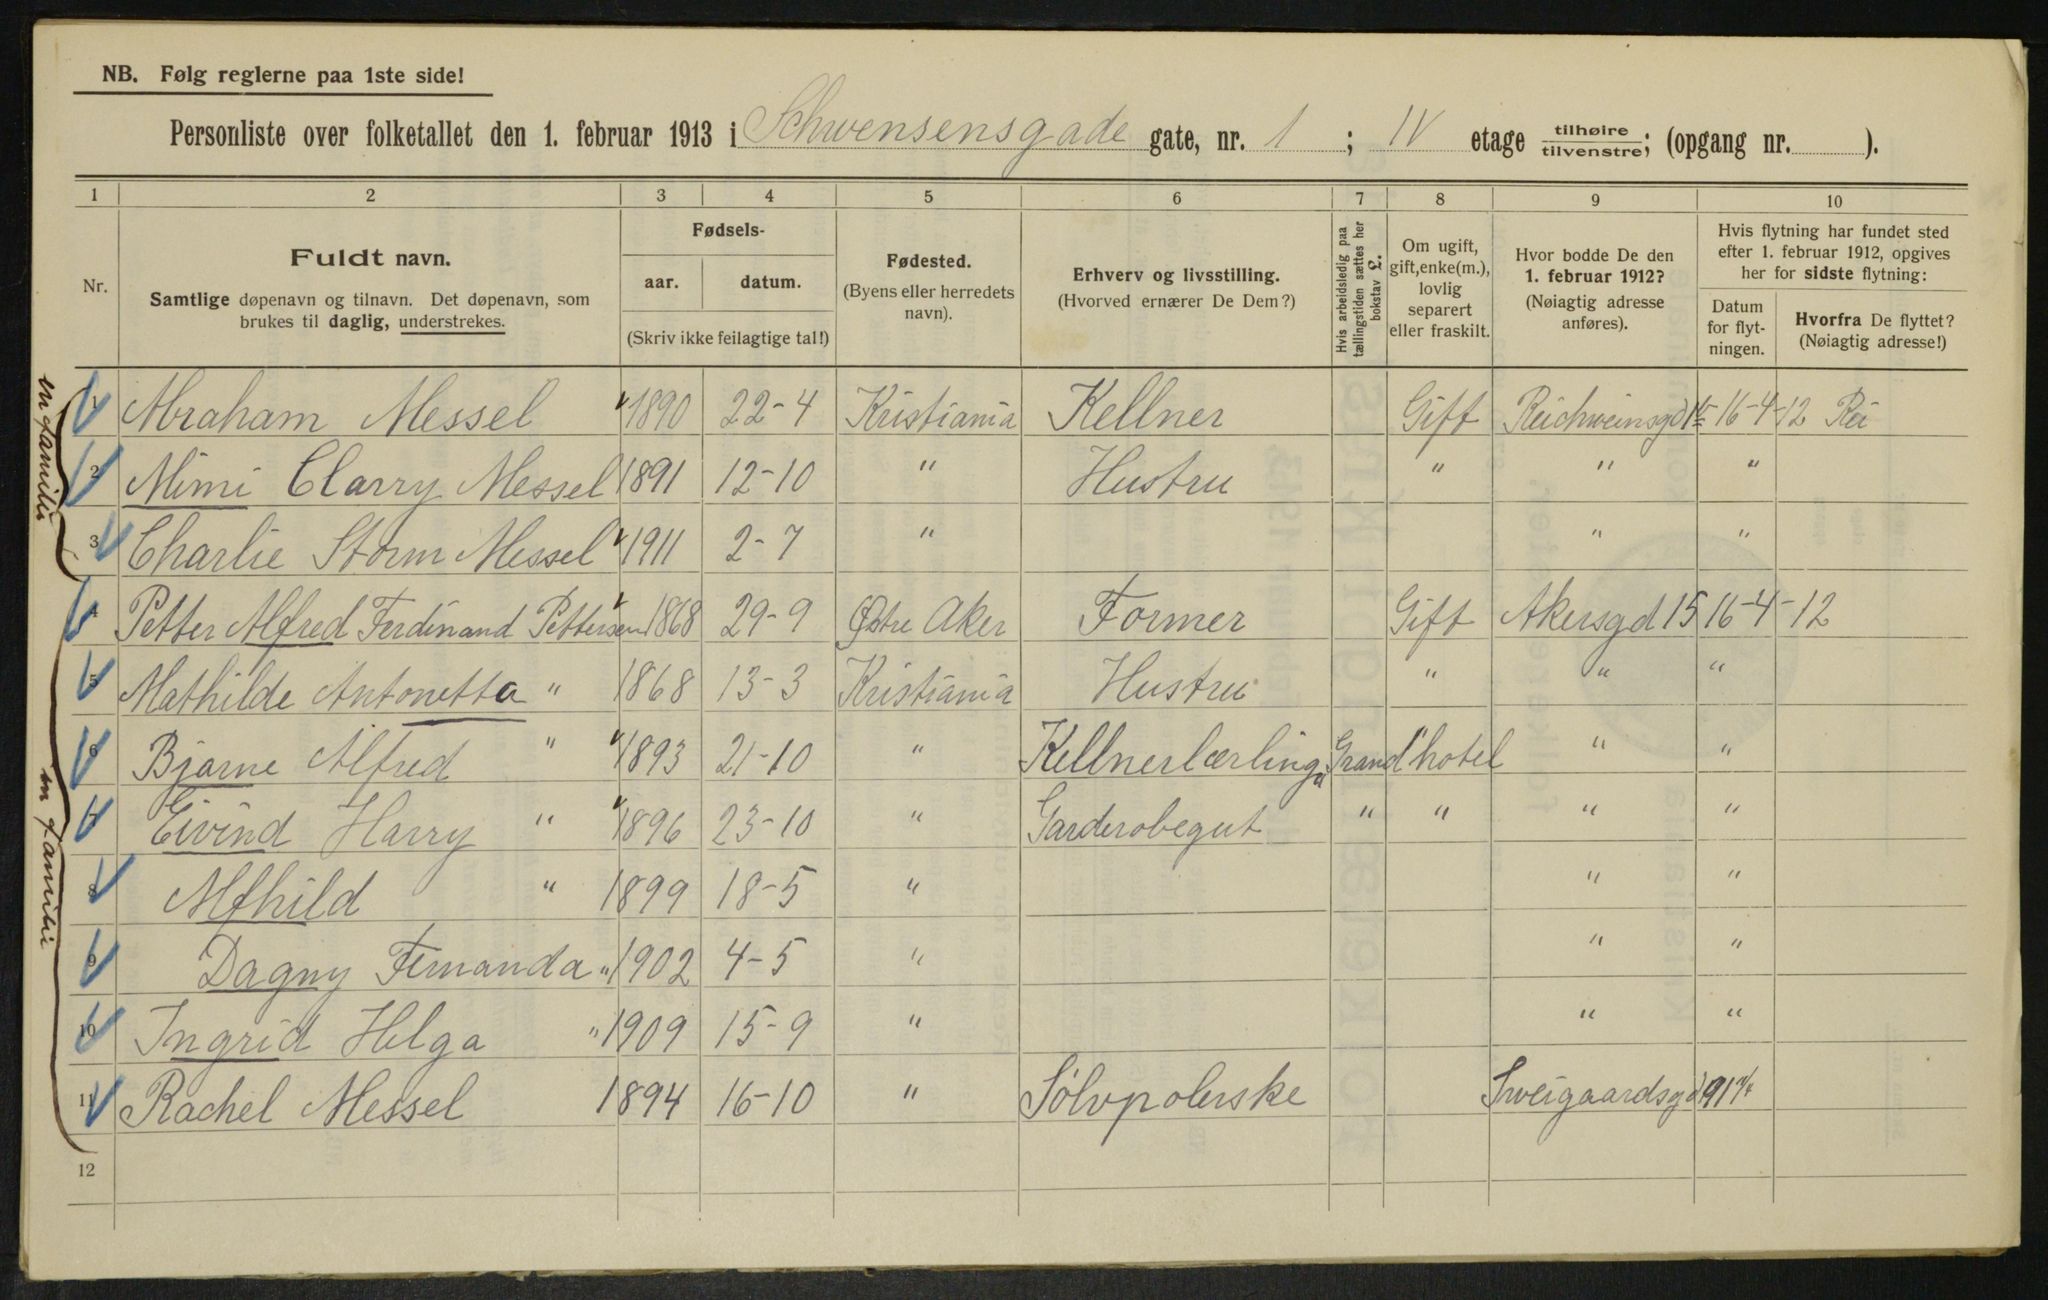 NB. Følg reglerne paa 1ste side!
Personliste over folketallet den 1. februar 1913 i Schwensensgade gate, nr. 1 ; IV etage tilhøire/tilvenstre; (opgang nr. ).
1 2 3 4 5 6 7 8 9 10
Nr.
Fuldt navn.
Samtlige døpenavn og tilnavn. Det døpenavn, som
brukes til daglig, understrekes.
Fødsels-
aar. datum.
(Skriv ikke feilagtige tal!)
Fødested.
(Byens eller herredets
navn).
Erhverv og livsstilling.
(Hvorved ernærer De Dem?)
Hvis arbeidsledig paa
tællingstiden sættes her
bokstav L.
Om ugift,
gift, enke(m.),
lovlig
separert
eller fraskilt.
Hvor bodde De den
1. februar 1912?
(Nøiagtig adresse
anføres).
Hvis flytning har fundet sted
efter 1. februar 1912, opgives
her for sidste flytning:
Datum
for flyt-
ningen.
Hvorfra De flyttet?
(Nøiagtig adresse!)
en familie
1 Abraham Messel 1890 22-4 Kristiania Kellner Gift Reichweinsgd 16-4-12 Rei
2 Mimi Clarry Messel 1891 12-10 " Hustru " " "
3 Charlie Storm Messel 1911 2-7 " " "
4 Petter Alfred Ferdinand Pettersen 1868 29-9 Østre Aker Former Gift Akersgd 15 16-4-12
5 Mathilde Antonetta " 1868 13-3 Kristiania Hustru " " "
6 Bjarne Alfred " 1893 21-10 " Kellnerlærling Grand hotel " "
7 Eivind Harry " 1896 23-10 " Garderobegut " " " "
en familie
8 Alfhild " 1899 18-5 " " "
9 Dagny Fernanda " 1902 4-5 " " "
10 Ingrid Helga " 1909 15-9 " " "
11 Rachel Messel 1894 16-10 " Sølvpolerske Sweigaardsgd 91
12